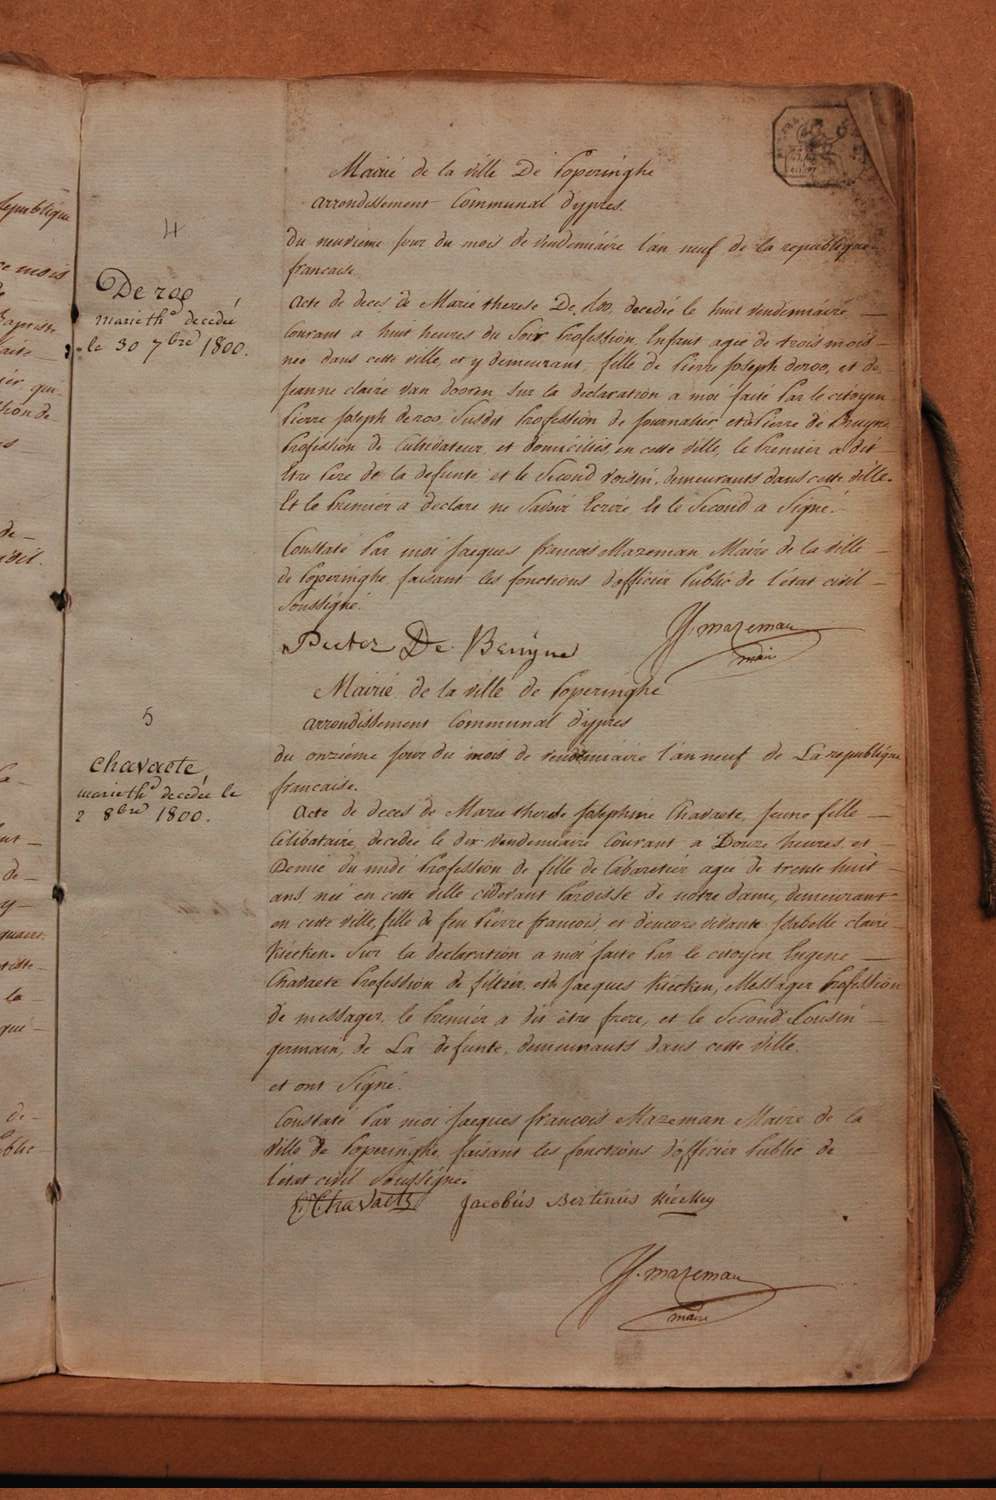 Mairié de la ville De Poperinghe
arrondissement Communal d'ypres.
4
Du neuvieme jour du mois de vendemiaire l'an neuf de la republique
francaise
De roo
marie thd decedée
le 30 7bre 1800.
Acte de deces de Marie therese De Roo, decedée le huit vendemiaire
Courant a huit heures du Soir Profession, Enfant agée de trois mois
née dans cette ville, et y demeurant, fille de Pierre Joseph deroo, et de
Jeanne claire van dooren, sur la declaration a moi faite Par le citoyen
Pierre Joseph deroo, Susdit Profession de Journalier et de Pierre de Bruyne
Profession de Cultivateur, et domiciliés, en cette ville, le Premier a dit
Etre Pere de la defunte et le Second voisin, demeurants dans cette ville.
Et le Premier a declare ne Savoir Ecrire Et le Second a Signé.
Constaté Par moi Jacques francois Mazeman Maire de la ville
de Poperinghe, faisant les fonctions d'officier Public de l'état civil
Soussigné.
Pieter De Bruyne
JJ. mazeman
maire
Mairié de la ville de Poperinghe
arrondissement Communal d'ypres
5
du onzieme jour du mois de vendemiaire l'an neuf de La republique
francaise.
Chavaete
marie thd decedée le
2 8bre 1800.
Acte de deces de Marie therese Josephine Chavaete, Jeune fille
Celibataire, decedée le dix vendemiaire Courant a Douze heures et
Demie du midi Profession de fille de Cabaretier agée de trente huit
ans, neé en cette ville cidevant Paroisse de notre dame, demeurant
en cette ville, fille de feu Pierre francois, et d'encore vivante Isabelle claire
Kiecken. Sur la declaration a moi faite Par le citoyen Eugene
Chavaete Profession de filtier, et de Jacques Kiecken, Messager Profession
De messager, le Premier a dit être frere, et le Second Cousin
germain, de La defunte, demeurants dans cette ville.
et ont Signé.
Constaté Par moi Jacques francois Mazeman Maire de la
ville de Poperinghe, faisant les fonctions d'officier Public de
l'état civil Soussigné.
E Chavaete Jacobus Bertinus Kiecken
JJ. mazeman
maire